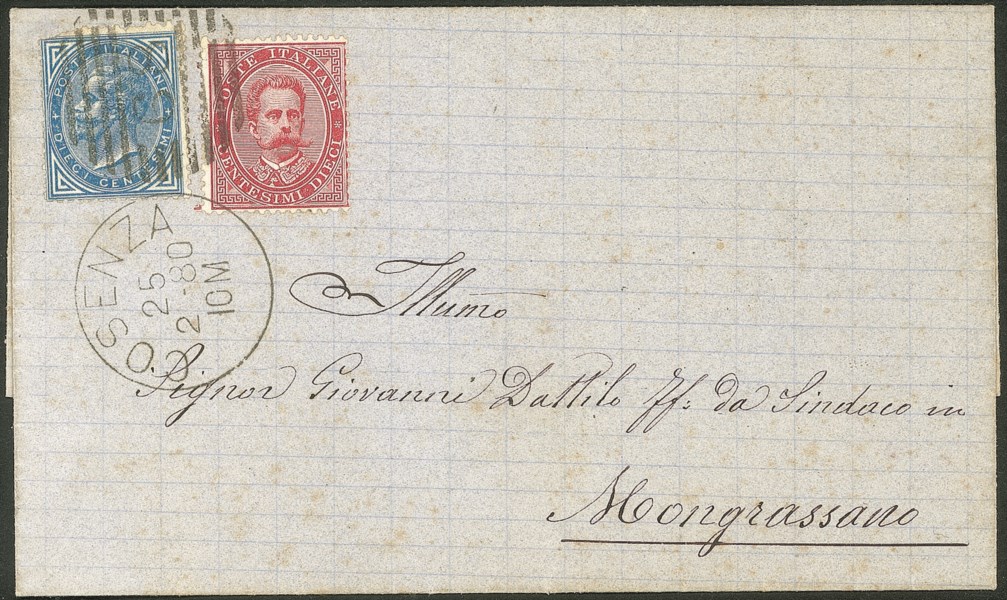 POSTE ITALIANE
DIECI CENTESIMI
POSTE ITALIANE
CENTESIMI DIECI
COSENZA
25
2-80
10M
Illumo
Signor Giovanni Dattilo ff: da Sindaco in
Mongrassano